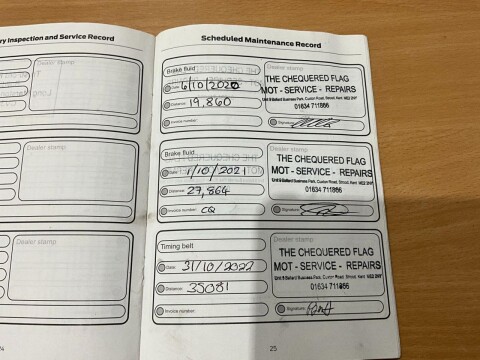 ry Inspection and Service Record
Dealer stamp
Dealer stamp
Dealer stamp
Scheduled Maintenance Record
Brake fluid
Date: 6/10/2020
Distance: 19,860
Invoice number:
Dealer stamp
THE CHEQUERED FLAG
MOT - SERVICE - REPAIRS
Unit 9 Ballard Business Park, Cuxton Road, Strood, Kent ME2 2NY
01634 711866
Signature:
Brake fluid
Date: 1/10/2021
Distance: 27,864
Invoice number: CQ
Dealer stamp
THE CHEQUERED FLAG
MOT - SERVICE - REPAIRS
Unit 9 Ballard Business Park, Cuxton Road, Strood, Kent ME2 2NY
01634 711866
Signature:
Timing belt
Date: 31/10/2022
Distance: 35081
Invoice number:
Dealer stamp
THE CHEQUERED FLAG
MOT - SERVICE - REPAIRS
Unit 9 Ballard Business Park, Cuxton Road, Strood, Kent ME2 2NY
01634 711866
Signature:
25